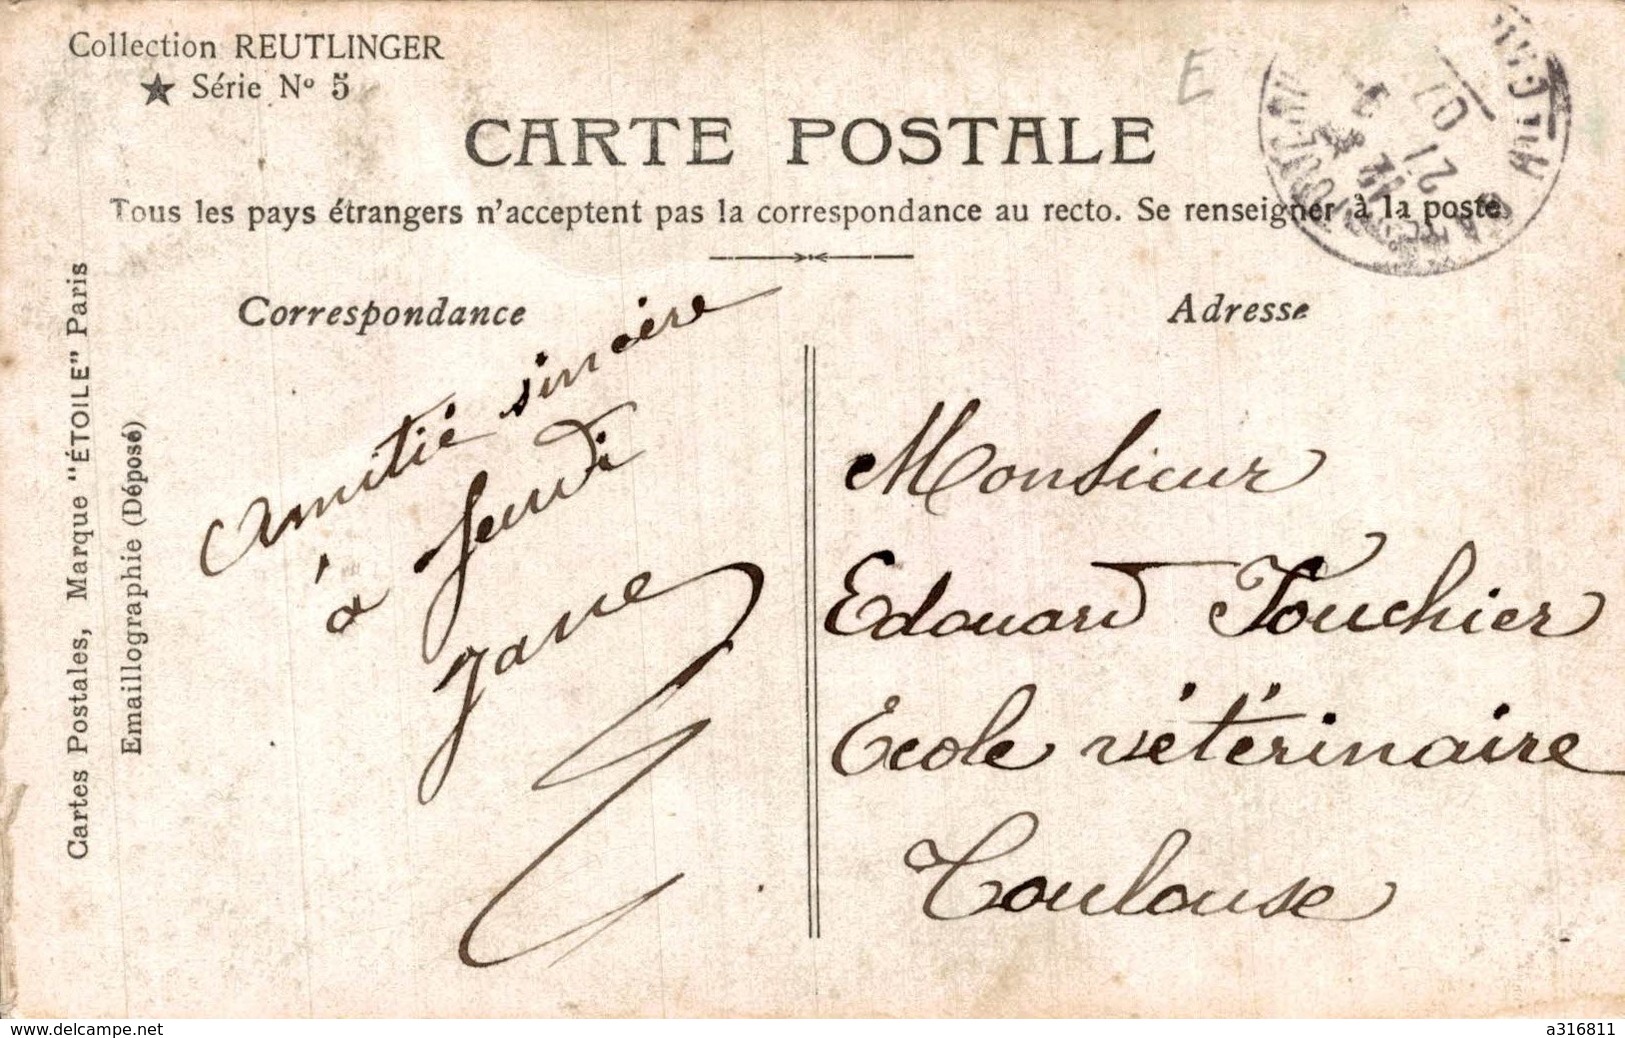 Collection REUTLINGER
★ Série Nº 5
CARTE POSTALE
Tous les pays étrangers n'acceptent pas la correspondance au recto. Se renseigner à la poste
Cartes Postales, Marque "ÉTOILE" Paris
Emaillographie (Déposé)
Correspondance
Amitié sincère
à Jeudi
Jane
Adresse
Monsieur
Edouard Touchier
Ecole vétérinaire
Toulouse
E
21
07
www.delcampe.net
a316811